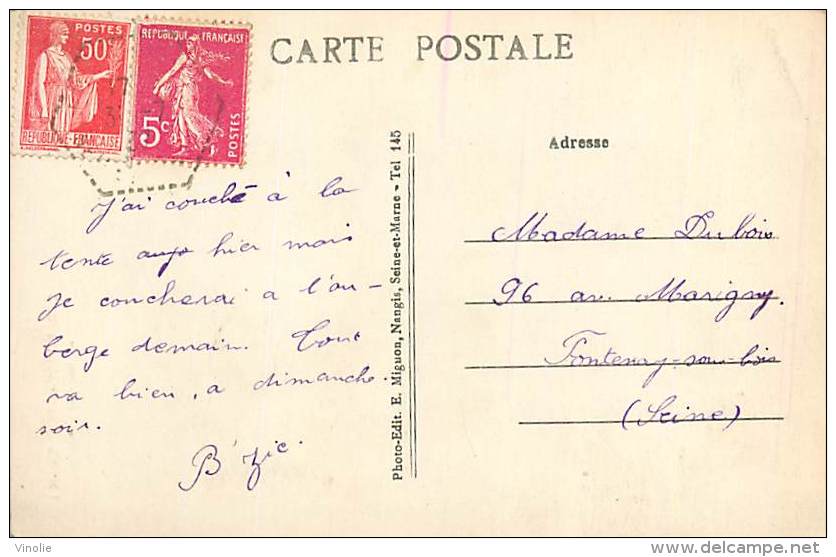 CARTE POSTALE
POSTES
50c
REPUBLIQUE-FRANÇAISE
REPUBLIQUE FRANÇAISE
5c
POSTES
J'ai couché à la
tente hier mais
je coucherai a l'au-
berge demain. Tout
va bien, a dimanche
soir.
Photo-Edit. E. Miguon, Nangis, Seine-et-Marne - Tel 145
Adresse
Madame Dubois
96 av. Marigny.
Fontenay-sous-bois
(Seine)
Vinolie
delcampe.net